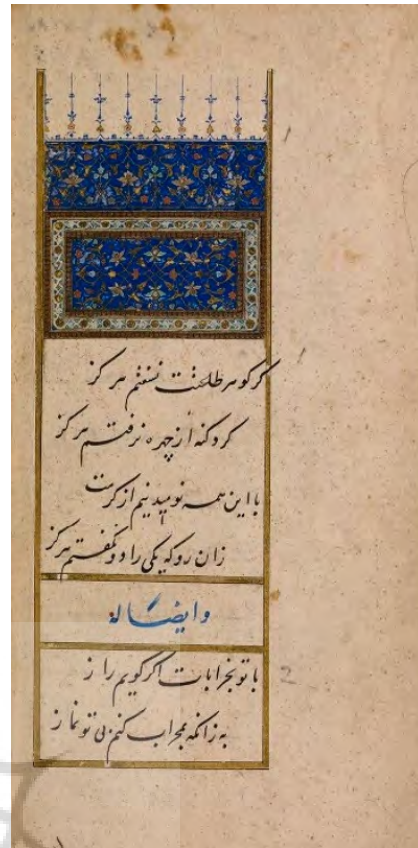 گر گوهر طاعتت نسفتم هرگز
گرد گنه از چهره نرفتم هرگز
با این همه نومید نیم از کرمت
زان رو که یکی را دو نگفتم هرگز
وایضاله
با تو بخرابات اگر گویم راز
به زانکه بمحراب کنم بی تو نماز
2